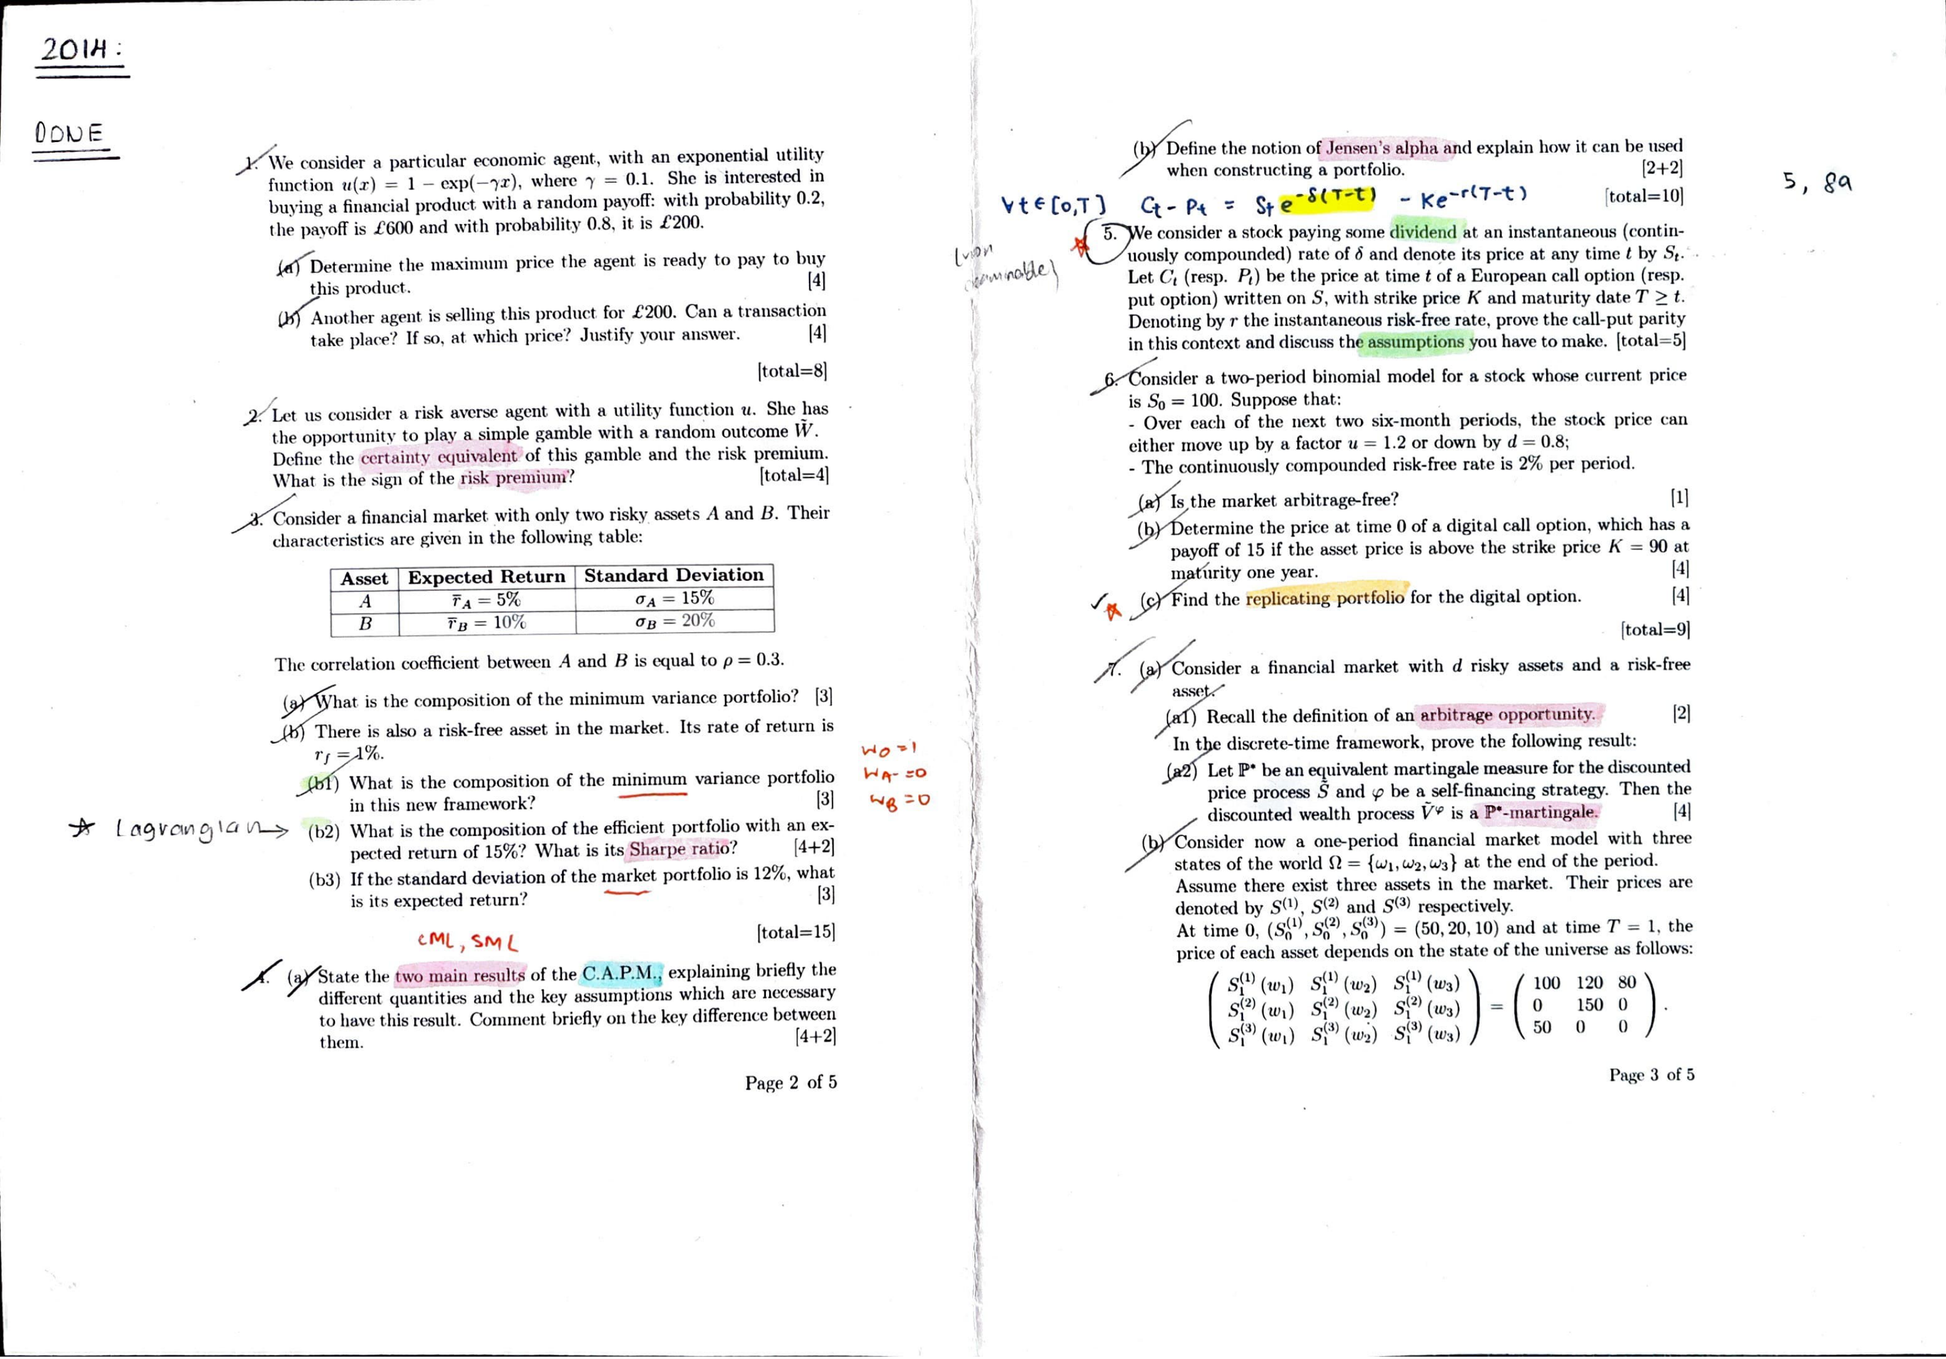 2014:
DONE
1. We consider a particular economic agent, with an exponential utility
function u(x) = 1 − exp(−γx), where γ = 0.1. She is interested in
buying a financial product with a random payoff: with probability 0.2,
the payoff is £600 and with probability 0.8, it is £200.
(a) Determine the maximum price the agent is ready to pay to buy
this product. [4]
(b) Another agent is selling this product for £200. Can a transaction
take place? If so, at which price? Justify your answer. [4]
[total=8]
2. Let us consider a risk averse agent with a utility function u. She has
the opportunity to play a simple gamble with a random outcome W̃.
Define the certainty equivalent of this gamble and the risk premium.
What is the sign of the risk premium? [total=4]
3. Consider a financial market with only two risky assets A and B. Their
characteristics are given in the following table:
Asset Expected Return Standard Deviation
A r̄_A = 5% σ_A = 15%
B r̄_B = 10% σ_B = 20%
The correlation coefficient between A and B is equal to ρ = 0.3.
(a) What is the composition of the minimum variance portfolio? [3]
(b) There is also a risk-free asset in the market. Its rate of return is
r_f = 1%.
(b1) What is the composition of the minimum variance portfolio
in this new framework? [3]
W0 = 1
WA = 0
WB = 0
☆ Lagrangian → (b2) What is the composition of the efficient portfolio with an ex-
pected return of 15%? What is its Sharpe ratio? [4+2]
(b3) If the standard deviation of the market portfolio is 12%, what
is its expected return? [3]
[total=15]
CML, SML
4. (a) State the two main results of the C.A.P.M., explaining briefly the
different quantities and the key assumptions which are necessary
to have this result. Comment briefly on the key difference between
them. [4+2]
Page 2 of 5
(b) Define the notion of Jensen's alpha and explain how it can be used
when constructing a portfolio. [2+2]
[total=10]
5, 8a
∀t∈[0,T] Ct − Pt = St e^−δ(T−t) − Ke^−r(T−t)
(non
examinable)
5. We consider a stock paying some dividend at an instantaneous (contin-
uously compounded) rate of δ and denote its price at any time t by S_t.
Let C_t (resp. P_t) be the price at time t of a European call option (resp.
put option) written on S, with strike price K and maturity date T ≥ t.
Denoting by r the instantaneous risk-free rate, prove the call-put parity
in this context and discuss the assumptions you have to make. [total=5]
6. Consider a two-period binomial model for a stock whose current price
is S_0 = 100. Suppose that:
- Over each of the next two six-month periods, the stock price can
either move up by a factor u = 1.2 or down by d = 0.8;
- The continuously compounded risk-free rate is 2% per period.
(a) Is the market arbitrage-free? [1]
(b) Determine the price at time 0 of a digital call option, which has a
payoff of 15 if the asset price is above the strike price K = 90 at
maturity one year. [4]
(c) Find the replicating portfolio for the digital option. [4]
[total=9]
7. (a) Consider a financial market with d risky assets and a risk-free
asset.
(a1) Recall the definition of an arbitrage opportunity. [2]
In the discrete-time framework, prove the following result:
(a2) Let ℙ* be an equivalent martingale measure for the discounted
price process S̃ and φ be a self-financing strategy. Then the
discounted wealth process Ṽ^φ is a ℙ*-martingale. [4]
(b) Consider now a one-period financial market model with three
states of the world Ω = {ω₁, ω₂, ω₃} at the end of the period.
Assume there exist three assets in the market. Their prices are
denoted by S^(1), S^(2) and S^(3) respectively.
At time 0, (S_0^(1), S_0^(2), S_0^(3)) = (50, 20, 10) and at time T = 1, the
price of each asset depends on the state of the universe as follows:
( S_1^(1)(w₁) S_1^(1)(w₂) S_1^(1)(w₃) ) ( 100 120 80 )
( S_1^(2)(w₁) S_1^(2)(w₂) S_1^(2)(w₃) ) = ( 0 150 0 ) .
( S_1^(3)(w₁) S_1^(3)(w₂) S_1^(3)(w₃) ) ( 50 0 0 )
Page 3 of 5